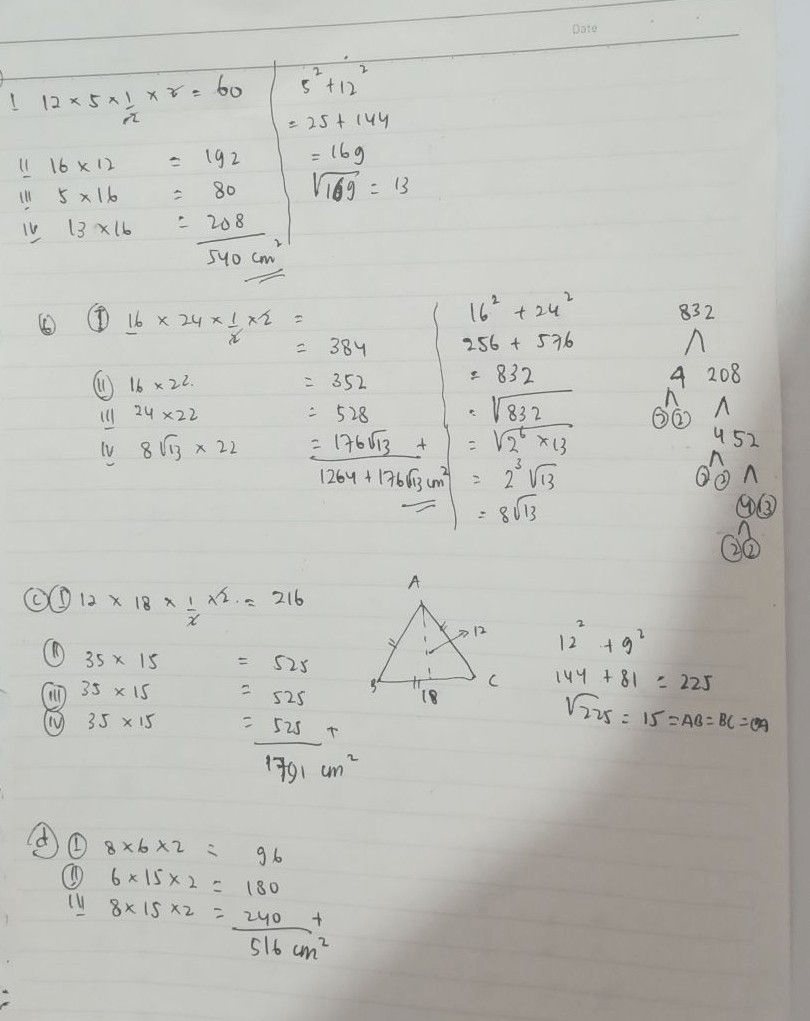 Date
I 12 × 5 × 1/2 × 2 = 60
II 16 × 12 = 192
III 5 × 16 = 80
IV 13 × 16 = 208
540 cm²
5² + 12²
= 25 + 144
= 169
√169 = 13
(b) (I) 16 × 24 × 1/2 × 2 =
= 384
(II) 16 × 22 = 352
III 24 × 22 = 528
IV 8√13 × 22 = 176√13 +
1264 + 176√13 cm²
16² + 24²
256 + 576
= 832
= √832
= √2⁶ × 13
= 2³ √13
= 8√13
832
4 208
2 2
4 52
2 2
4 13
2 2
(c) (I) 12 × 18 × 1/2 × 2 = 216
(II) 35 × 15 = 525
(III) 35 × 15 = 525
(IV) 35 × 15 = 525 +
1791 cm²
A
12
B C
18
12² + 9²
144 + 81 = 225
√225 = 15 = AB = BC = CA
(d) (I) 8 × 6 × 2 = 96
(II) 6 × 15 × 2 = 180
III 8 × 15 × 2 = 240 +
516 cm²